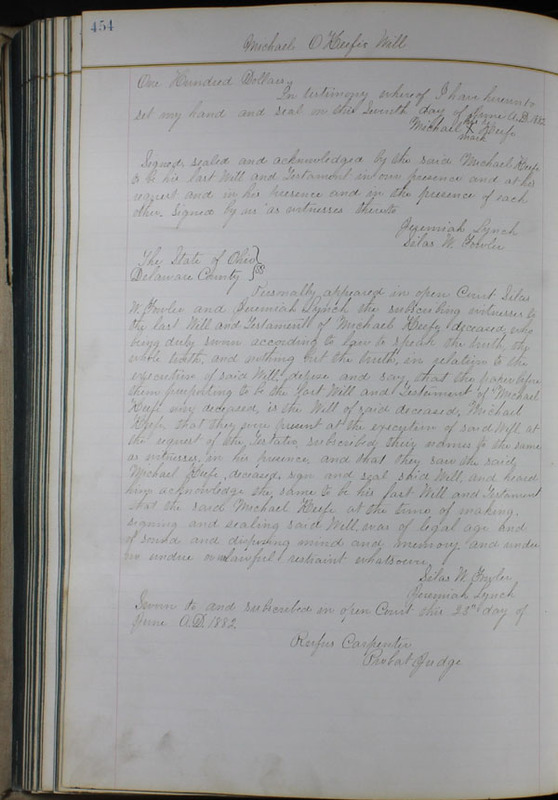 454
Michael O'Keefe's Will
One Hundred Dollars.
In testimony whereof I have hereunto
set my hand and seal on this Seventh day of June A.D. 1882
his
Michael X Keefe
mark
Signed, sealed and acknowledged by the said Michael Keefe
to be his last Will and Testament in our presence and at his
request and in his presence and in the presence of each
other. Signed by us as witnesses thereto
Jeremiah Lynch
Silas W. Fowler
The State of Ohio }
Delaware County } SS
Personally appeared in open Court Silas
W. Fowler and Jeremiah Lynch the subscribing witnesses to
the last Will and Testament of Michael Keefe, deceased, who
being duly sworn according to law to speak the truth, the
whole truth, and nothing but the truth, in relation to the
execution of said Will, depose and say, that the paper before
them purporting to be the last Will and Testament of Michael
Keefe, deceased, is the Will of said deceased, Michael
Keefe, that they were present at the execution of said Will, at
the request of the Testator, subscribed their names to the same
as witnesses, in his presence, and that they saw the said
Michael Keefe, deceased, sign and seal said Will, and heard
him acknowledge the same to be his last Will and Testament
that the said Michael Keefe at the time of making,
signing and sealing said Will, was of legal age and
of sound and disposing mind and memory and under
no undue or unlawful restraint whatsoever.
Silas W. Fowler
Jeremiah Lynch
Sworn to, and subscribed in open Court this 23rd day of
June A.D. 1882.
Rufus Carpenter
Probat Judge